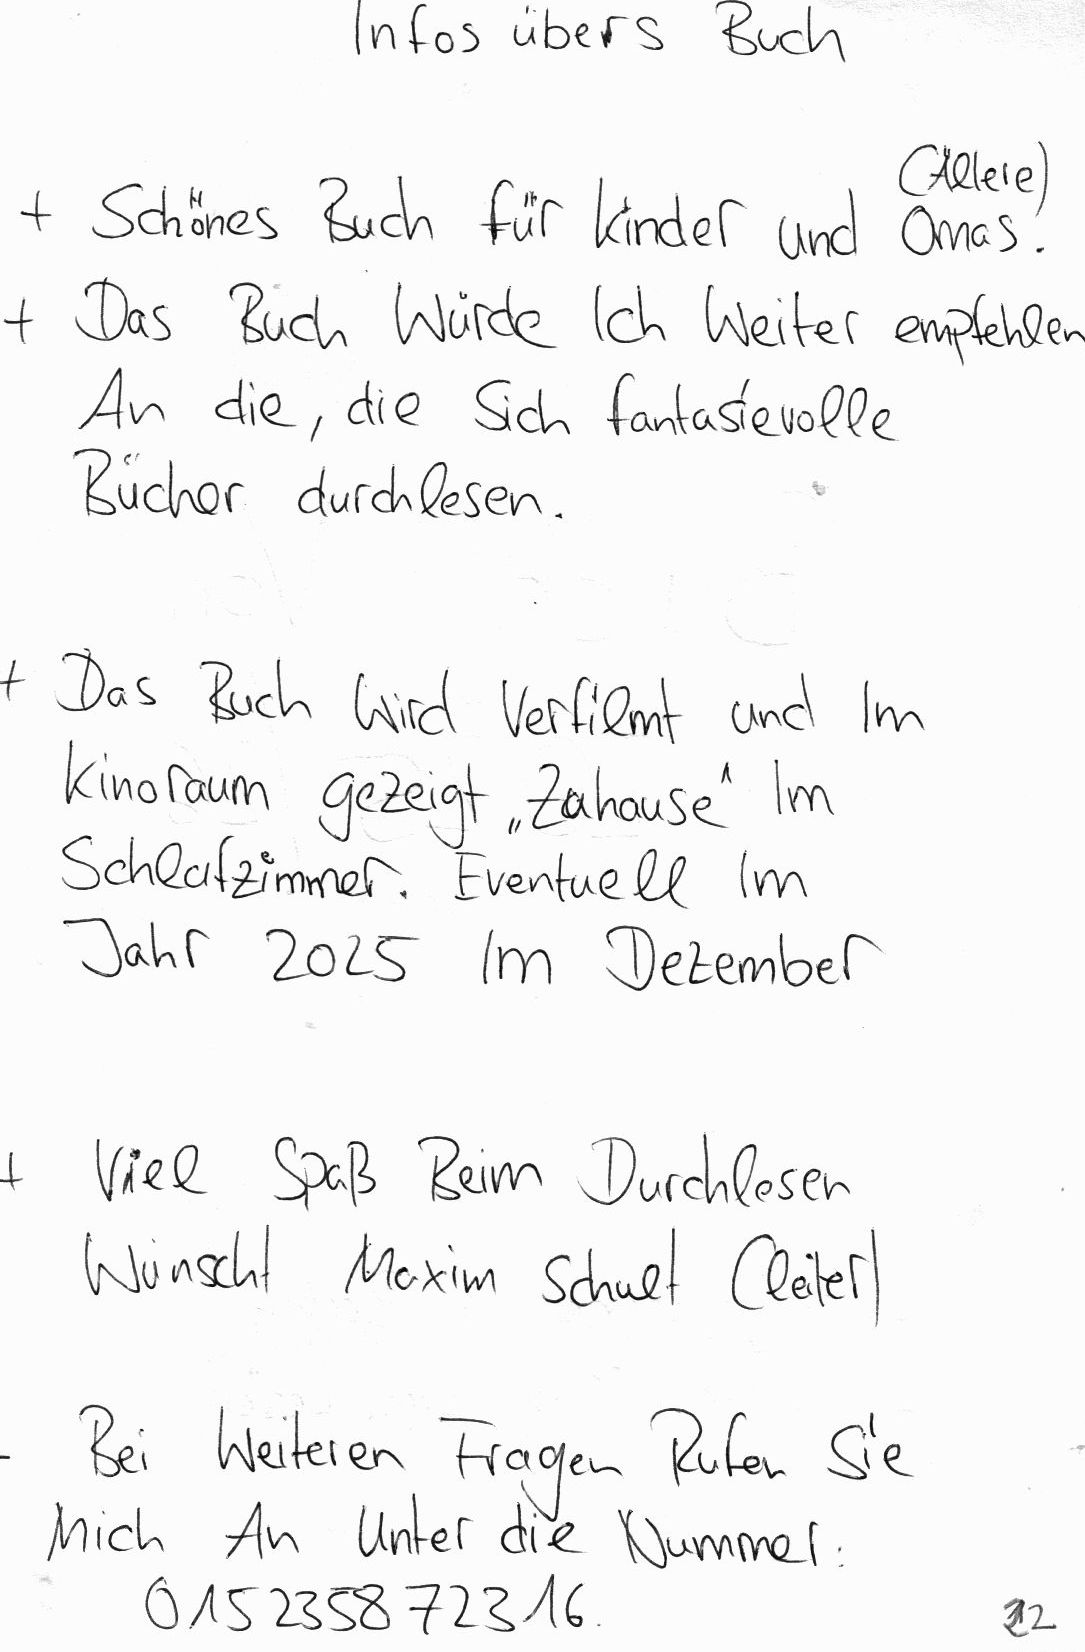 Infos übers Buch
(Ältere)
+ Schönes Buch für kinder und Omas.
+ Das Buch Würde Ich Weiter empfehlen
An die, die Sich fantasievolle
Bücher durchlesen.
+ Das Buch Wird Verfilmt und Im
Kinoraum gezeigt „Zuhause“ Im
Schlafzimmer. Eventuell Im
Jahr 2025 Im Dezember
+ Viel Spaß Beim Durchlesen
Wünscht Maxim Schult (leiter)
- Bei Weiteren Fragen Rufen Sie
Mich An Unter die Nummer:
015235872316.